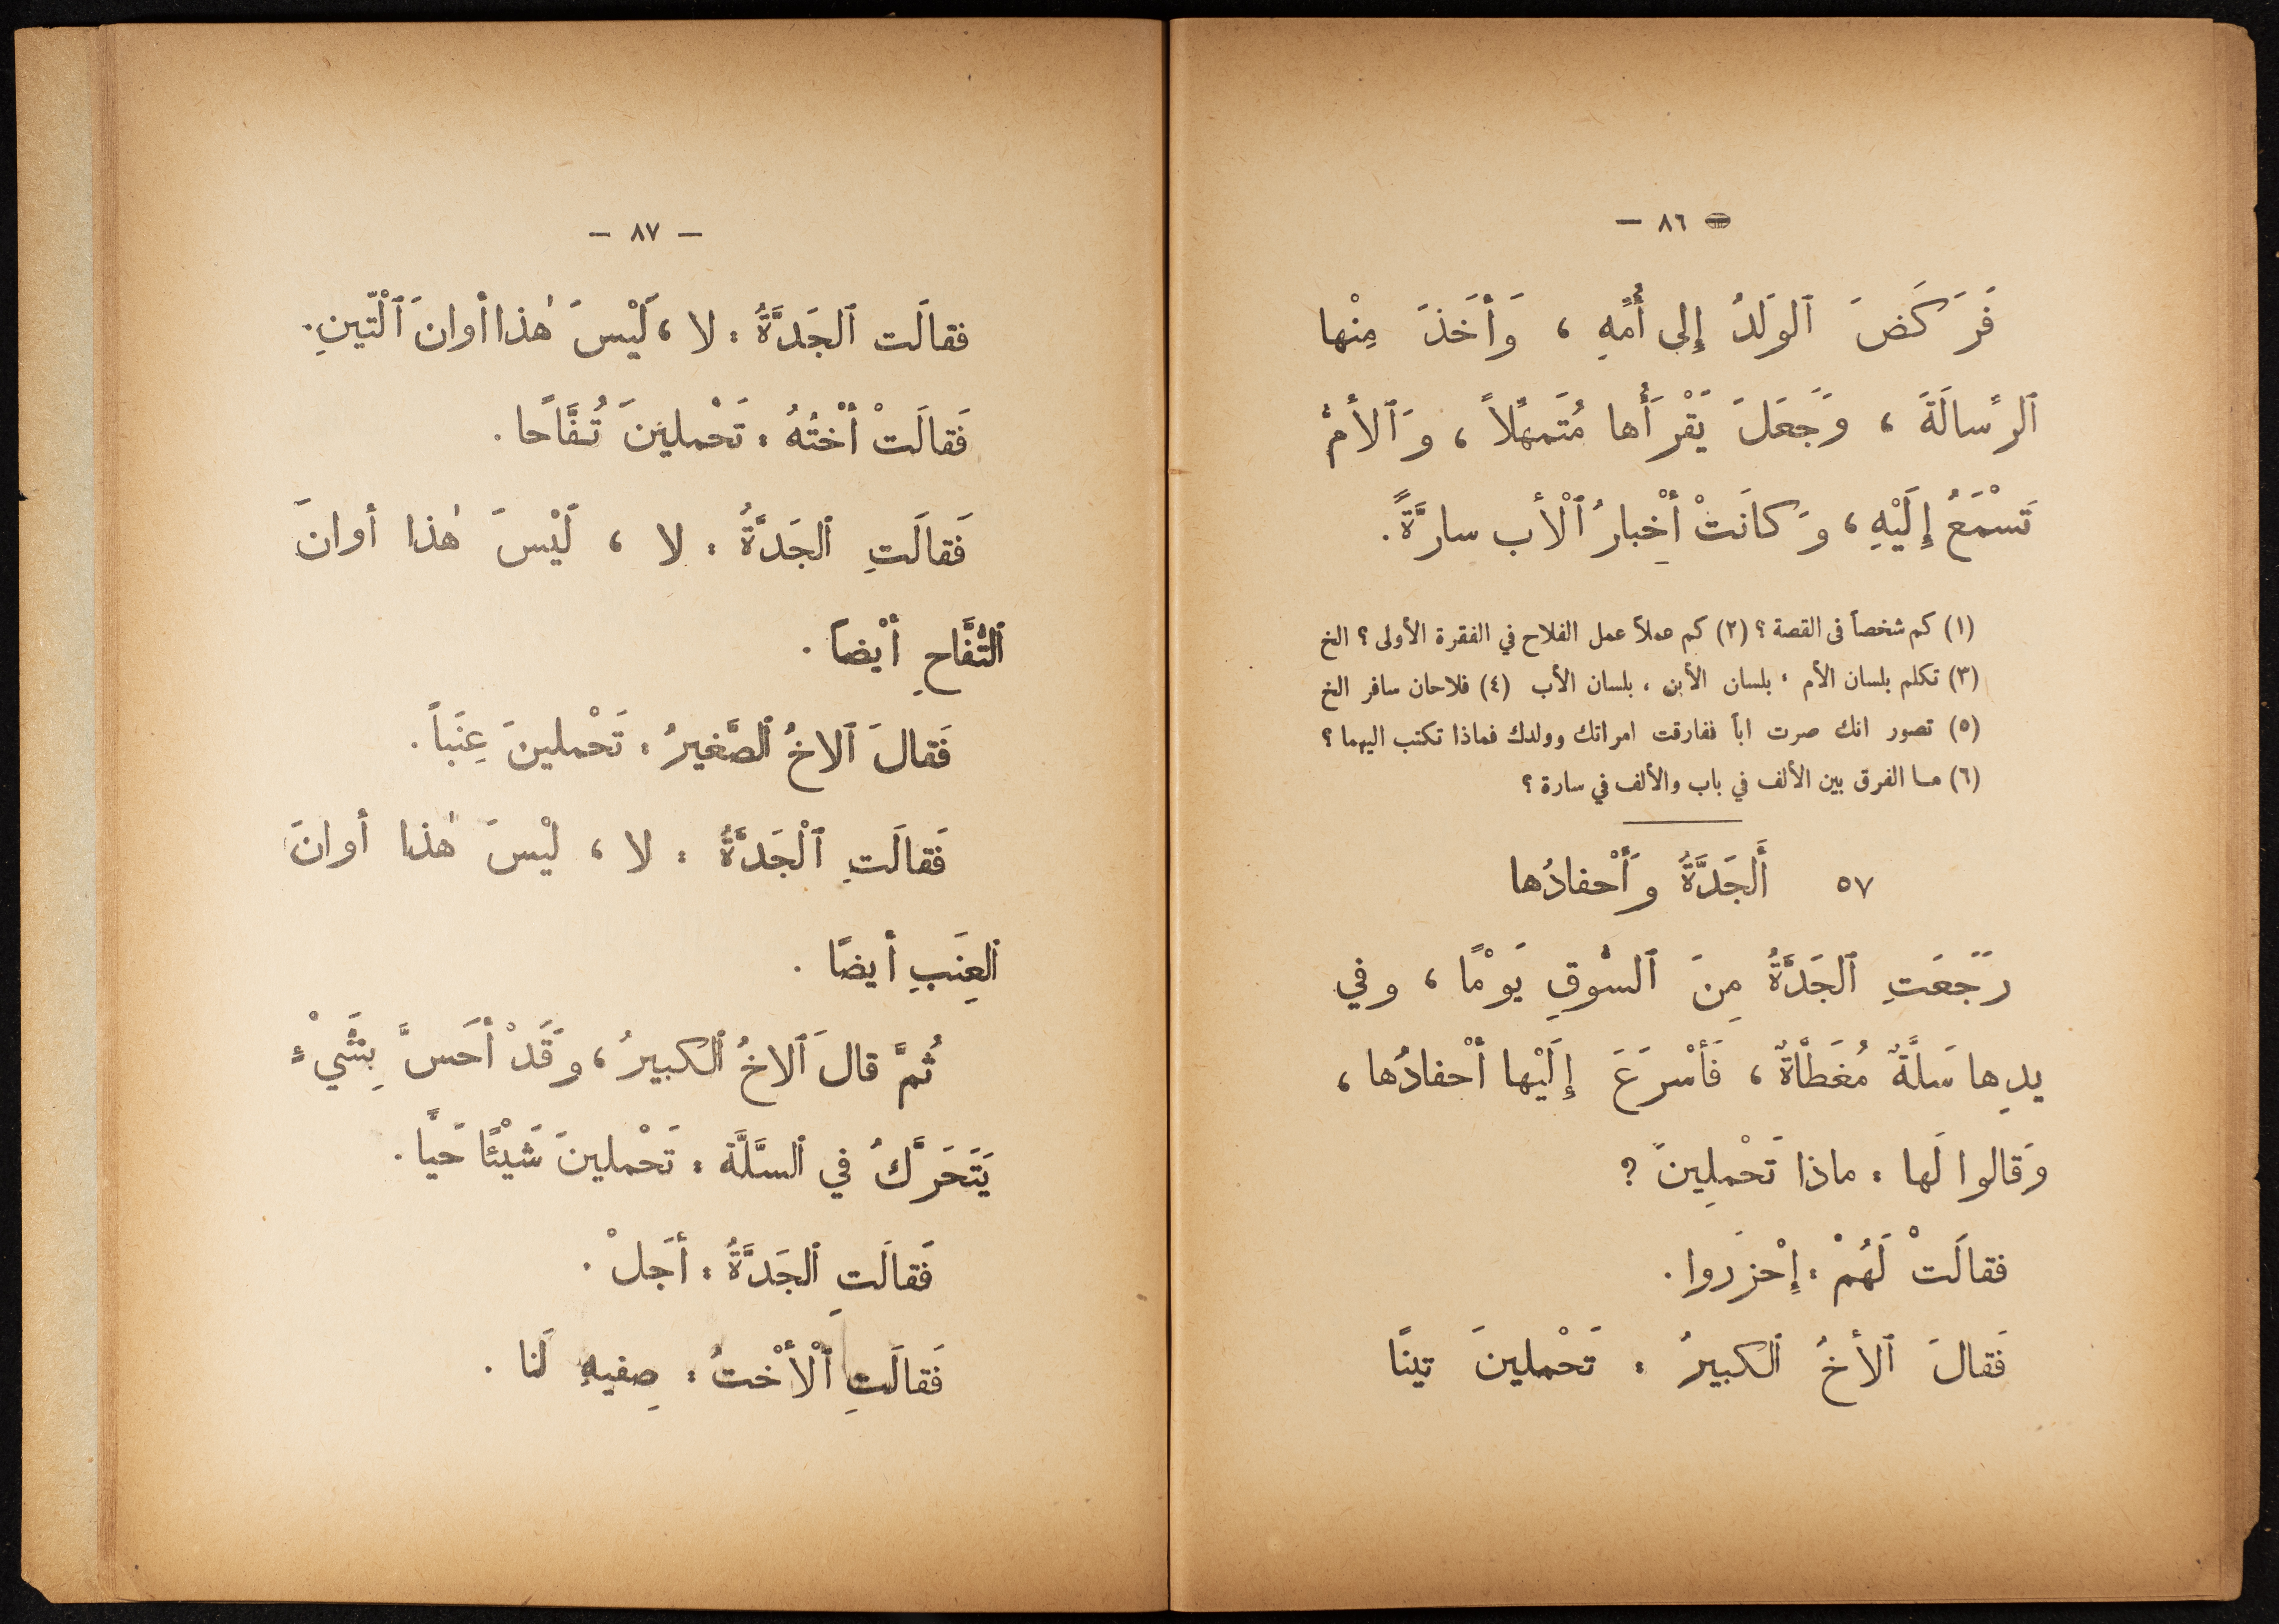 — ٨٦ —
فَرَكَضَ ٱلوَلَدُ إِلى أُمِّهِ ، وَأَخَذَ مِنْها
ٱلرِّسالَةَ ، وَجَعَلَ يَقْرَأُها مُتَمَهِّلاً ، وَٱلأُمُّ
تَسْمَعُ إِلَيْهِ ، وَكانَتْ أَخْبارُ ٱلْأَبِ سارَّةً .
(١) كم شخصاً في القصة ؟ (٢) كم عملاً عمل الفلاح في الفقرة الأولى ؟ الخ
(٣) تكلم بلسان الأم ، بلسان الأبن ، بلسان الأب (٤) فلاحان سافر الخ
(٥) تصور انك صرت اباً ففارقت امراتك وولدك فماذا تكتب اليهما ؟
(٦) مـا الفرق بين الألف في باب والألف في سارة ؟
٥٧ أَلجَدَّةُ وَأَحْفادُها
رَجَعَتِ ٱلجَدَّةُ مِنَ ٱلسُّوقِ يَوْمًا ، وفي
يدِها سَلَّةٌ مُغَطّاةٌ ، فَأَسْرَعَ إِلَيْها أَحْفادُها ،
وَقالوا لَها : ماذا تَحْمِلِينَ ؟
فقالَتْ لَهُمْ : إِحْزَروا .
فَقالَ ٱلأَخُ ٱلكبيرُ : تَحْملينَ تينًا
— ٨٧ —
فقالَت ٱلجَدَّةُ : لا ، لَيْسَ هٰذا أوانَ ٱلْتّينِ .
فَقالَتْ أُخْتُهُ : تَحْملينَ تُفَّاحًا .
فَقالَتِ ٱلجَدَّةُ : لا ، لَيْسَ هٰذا أوانَ
ٱلتُّفَّاحِ أَيْضاً .
فَقالَ ٱلاخُ ٱلصَّغيرُ : تَحْملينَ عِنَباً .
فَقالَتِ ٱلْجَدَّةُ : لا ، ليْسَ هٰذا أوانَ
ٱلعِنَبِ أيضًا .
ثُمَّ قالَ ٱلاخُ ٱلكبيرُ ، وَقَدْ أَحَسَّ بِشَيْءٍ
يَتَحَرَّكُ في ٱلسَّلَّة : تَحْملينَ شَيْئًا حَيًّا .
فَقالَتِ ٱلجَدَّةُ : أَجَلْ .
فَقالَتِ ٱلْأُخْتُ : صِفيهِ لَنا .